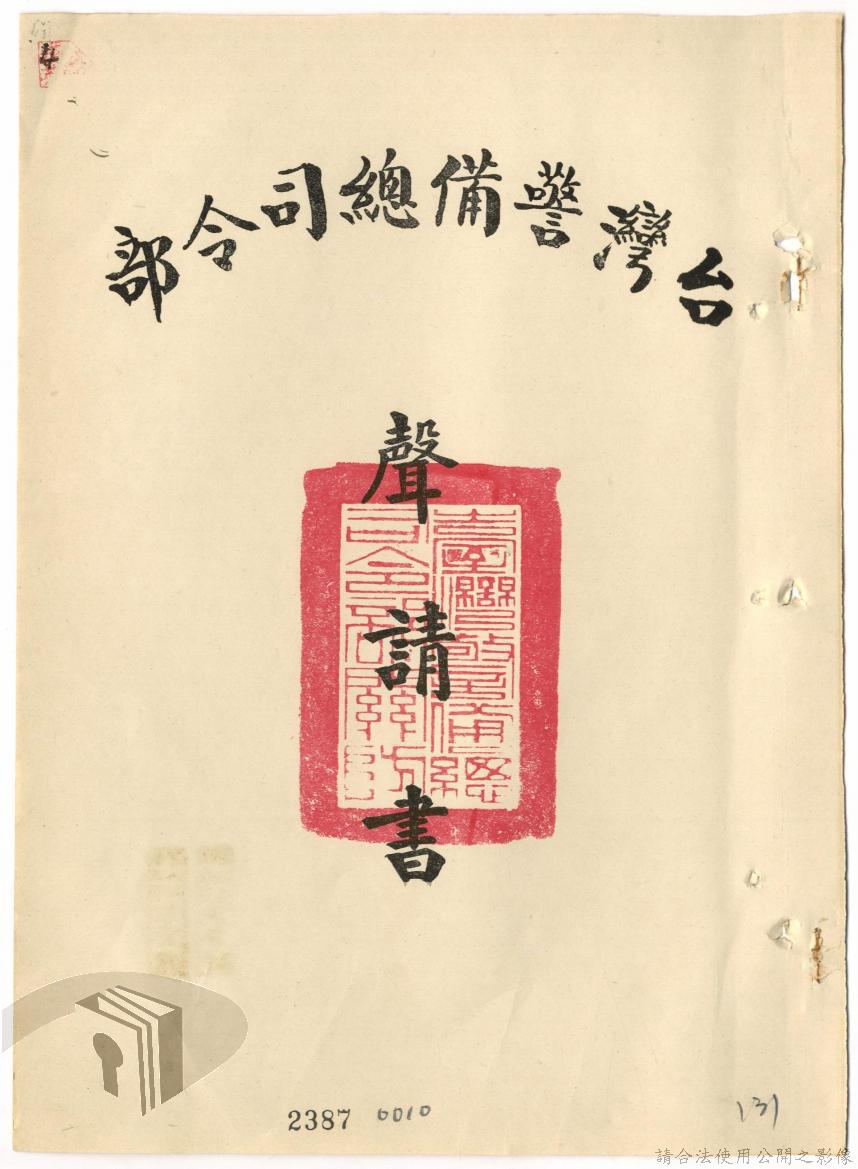 台灣警備總司令部
聲請書
臺灣警備總
司令部關防
2387 0010
131
請合法使用公開之影像